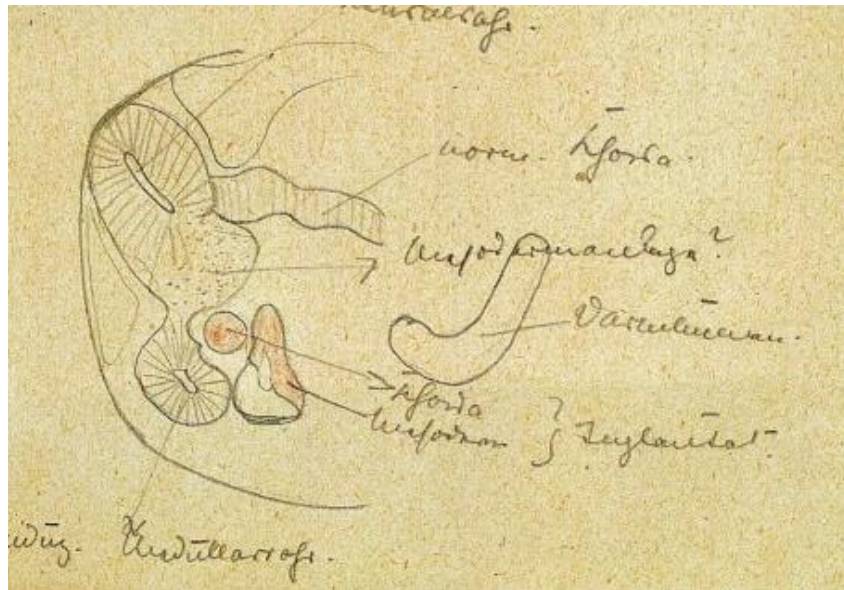 Neuralrohr.
norm. Chorda.
Mesodermanlage?
Darmlumen.
Chorda
Mesoderm } Implantat.
induz. Medullarrohr.